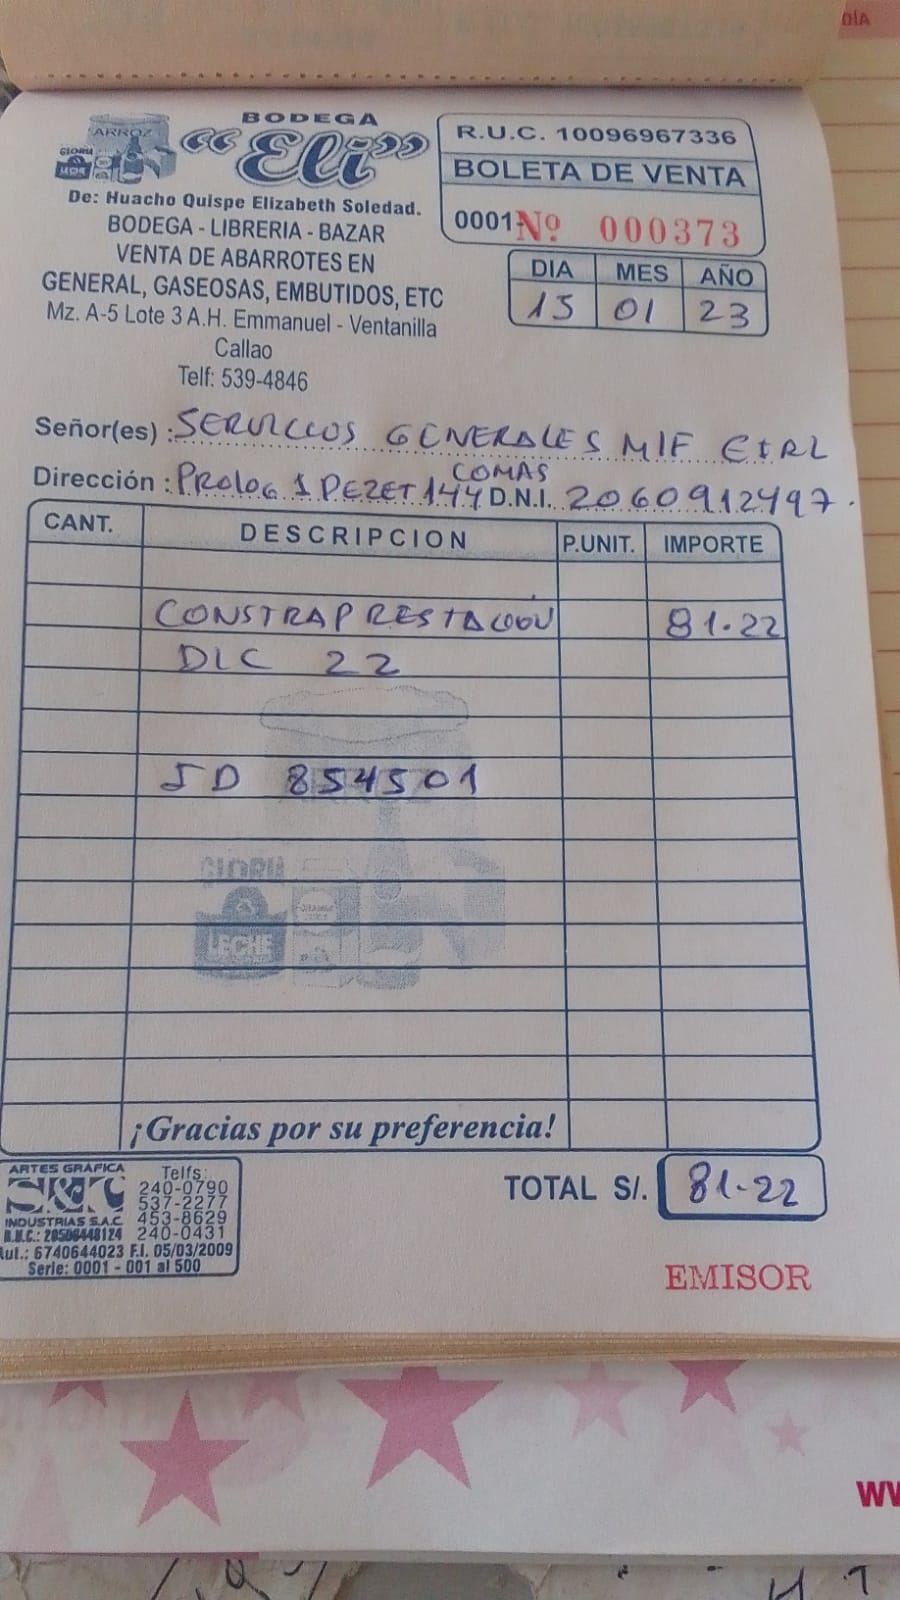 DÍA
BODEGA
"Eli"
ARROZ
GLORIA
LECHE
De: Huacho Quispe Elizabeth Soledad.
BODEGA - LIBRERIA - BAZAR
VENTA DE ABARROTES EN
GENERAL, GASEOSAS, EMBUTIDOS, ETC
Mz. A-5 Lote 3 A.H. Emmanuel - Ventanilla
Callao
Telf: 539-4846
R.U.C. 10096967336
BOLETA DE VENTA
0001- Nº 000373
DIA MES AÑO
15 01 23
Señor(es) : SERVICIOS GENERALES MIF EIRL
COMAS
Dirección : PROLOG 1 PEZET 144 D.N.I. 20609912497.
CANT. DESCRIPCION P.UNIT. IMPORTE
CONSTRAPRESTACION 81.22
DIC 22
JD 854501
GLORIA
LECHE
¡Gracias por su preferencia!
TOTAL S/. 81-22
EMISOR
ARTES GRAFICA
S&K
INDUSTRIAS S.A.C.
R.U.C.: 20506448124
Telfs:
240-0790
537-2277
453-8629
240-0431
Aut.: 6740644023 F.I. 05/03/2009
Serie: 0001 - 001 al 500